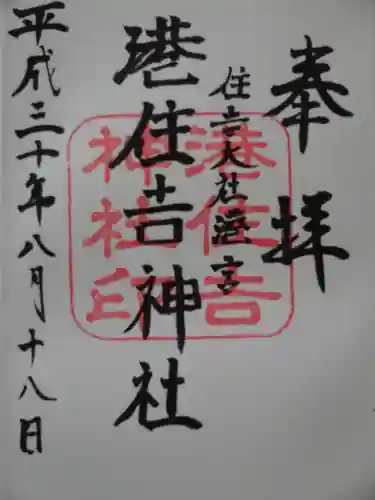 奉拝
住吉大社遥宮
港住吉神社
平成三十年八月十八日
港住吉
神社印